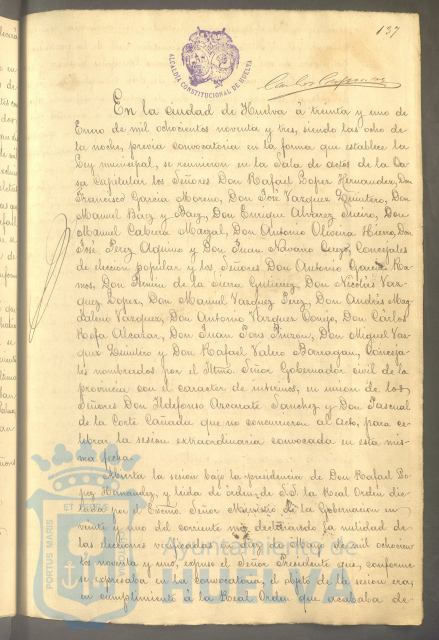 137
ALCALDIA CONSTITUCIONAL DE HUELVA
En la ciudad de Huelva á treinta y uno de
Enero de mil ochocientos noventa y tres, siendo las ocho de
la noche, previa convocatoria en la forma que establece la
Ley municipal, se reunieron en la Sala de actos de la Ca-
sa Capitular los Señores Don Rafael Lopez Hernandez, Don
Francisco Garcia Moreno, Don José Vazquez Quintero, Don
Manuel Baez y Baez, Don Enrique Alvarez, Don
Manuel Cabrera, Don Antonio Oliveira Hierro, Don
José Perez Aquino y Don Juan Navarro, Concejales
de eleccion popular y los Señores Don Antonio Garcia Ra-
mos, Don Fermin de la Sierra Gutierrez, Don Nicolás Vaz-
quez Lopez, Don Manuel Vazquez Perez, Don Andrés Mag-
daleno Vazquez, Don Antonio Vazquez, Don Cárlos
Alcazar, Don Juan Pons Pinzon, Don Miguel Vaz-
quez Quintero y Don Rafael Valero Barragan, Conceja-
les nombrados por el Iltmo. Señor Gobernador civil de la
provincia con el caracter de interinos, en union de los
Señores Don Ildefonso Sanchez y Don Pascual
de la Corte Cañada que no concurrieron al acto, para ce-
lebrar la sesion extraordinaria convocada en esta mis-
ma fecha.
Abierta la sesion bajo la presidencia de Don Rafael Lo-
pez Hernandez, y leida de orden de S.S. la Real Orden dic-
tada por el Excmo. Señor Ministro de la Gobernacion en
veinte y uno del corriente mes declarando la nulidad de
las elecciones verificadas en Mayo de mil ochocien-
tos noventa y uno, expuso el Señor Presidente que, conforme
se expresaba en la convocatoria, el objeto de la sesion era,
en cumplimiento á la Real Orden que acababa de
PORTUS MARIS
Ayuntamiento de
HUELVA